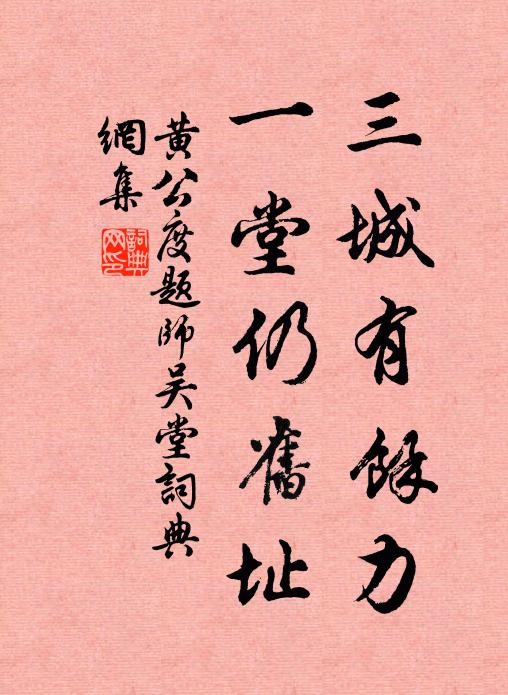 三城有餘力
一堂仍舊址
黃公度題師吴堂詞典
網集
詞典網印